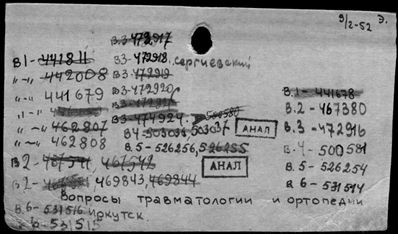 9/2-52 Э.
В.3-472917
В1-441811 В3-472918. Сергиевский
"-" 442008 В3-472919
"-" 441679 В3-472920
В.1-441678
"-"
В.2-467380
"-" 462807 В3-474924.
АНАЛ В.3-472916
"-" 462808 В4-503036, 503037
В.5-526256, 526255 В.4-500581
В2- 467542 АНАЛ В.5-526254
В2- 469843, 469844 В6-531514
Вопросы травматологии и ортопедии
В.6-531516 Иркутск.
В-531515